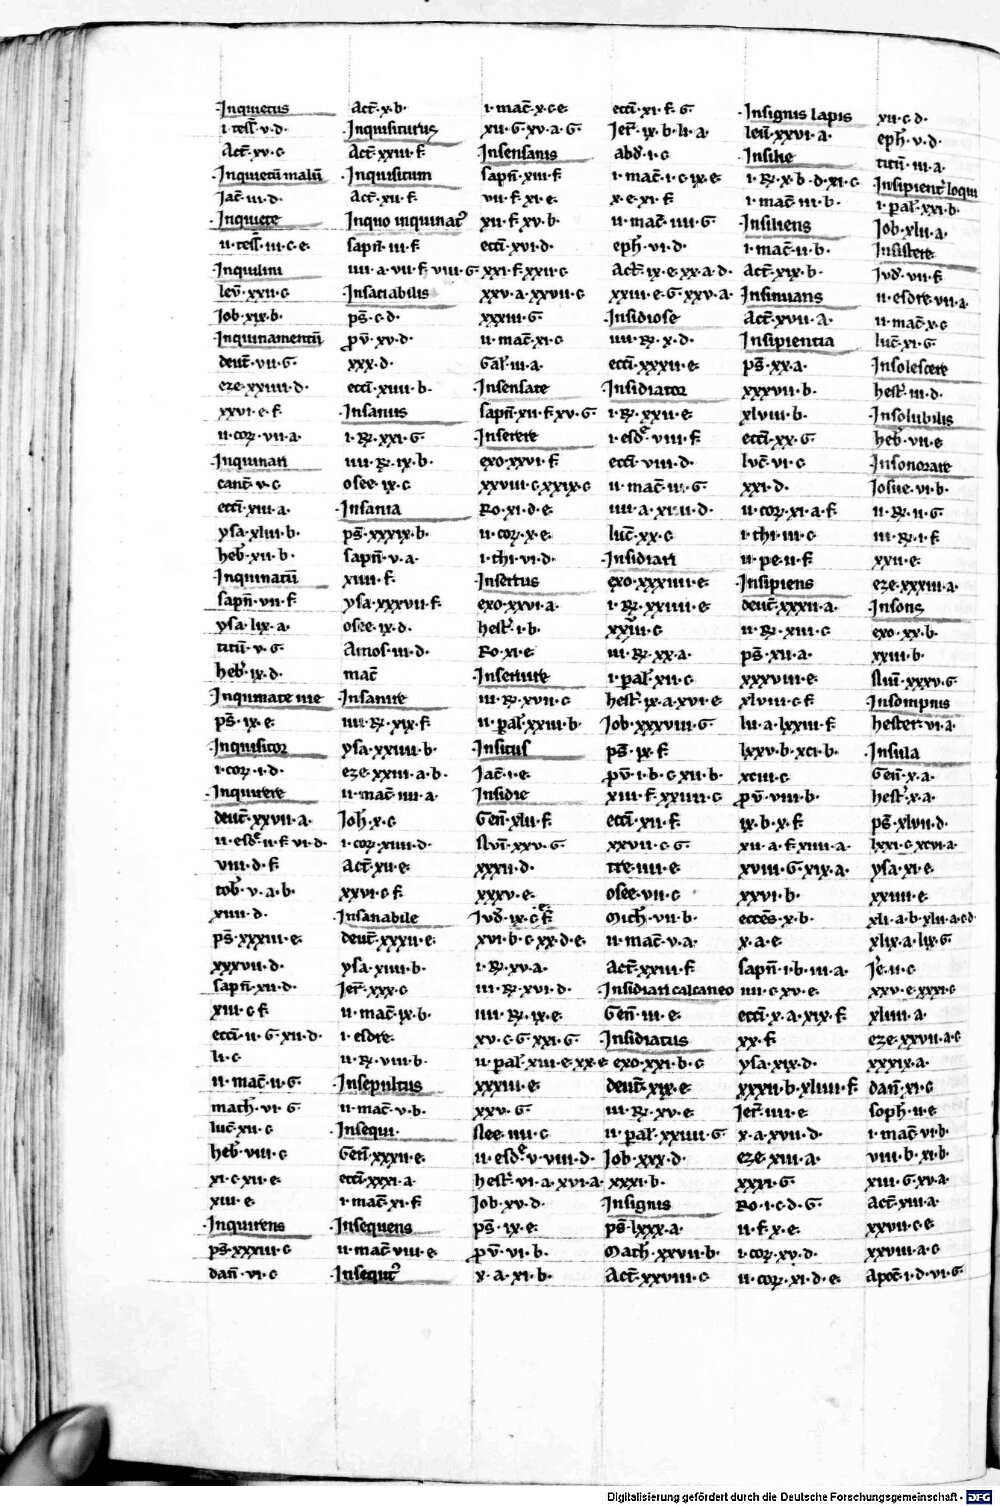 Inquietus
i · tess̄ · v · d ·
Act̄ · xv · c
Inquietū malū
Jac̄ · iii · d ·
Inquiete
ii · tess̄ · iii · c · e ·
Inquilini
leū · xxii · c
Job · xix · b ·
Inquinamentū
deut̄ · vii · G ·
eze · xxiiii · d ·
xxvi · e · f ·
ii · cor · vii · a ·
Inquinari
cant̄ · v · c
ecc̄i · xiii · a ·
ysa · xliii · b ·
heb̄ · xii · b ·
Inquinatū
sapn̄ · vii · f
ysa · lix · a ·
titū · v · G ·
heb̄ · ix · d ·
Inquinate me
ps̄ · ix · e ·
Inquisitor
i · cor · i · d ·
Inquirere
deut̄ · xxvii · a ·
ii · esd̄r · ii · f · vi · d ·
viii · d · f ·
tob̄ · v · a · b ·
xiiii · d ·
ps̄ · xxxiii · e ·
xxxvii · d ·
sapn̄ · xii · d ·
xiii · c · f
ecc̄i · ii · G · xii · d ·
li · c
ii · mac̄ · ii · G ·
math̄ · vi · G
luc̄ · xii · c
heb̄ · viii · c
xi · c · xii · e ·
xiii · e ·
Inquirens
ps̄ · xxxiii · c
dan̄ · vi · c
Act̄ · x · b ·
Inquisiturus
Act̄ · xxiii · f
Inquisitum
Act̄ · xii · f ·
Inquo inquinat̄
sapn̄ · iii · f
iiii · a · vii · f · viii · G
Insaciabilis
ps̄ · c · d ·
pv̄ · xv · d ·
xxx · d ·
ecc̄i · xiiii · b ·
Insanus
i · R · xxi · G ·
iiii · R · ix · b ·
osee · ix · c
Insania
ps̄ · xxxix · b ·
sapn̄ · v · a ·
xiiii · f ·
ysa · xxxvii · f ·
osee · ix · d ·
Amos · iii · d ·
mac̄
Insanire
iiii · R · xix · f
ysa · xxiiii · b ·
eze · xxiii · a · b ·
ii · mac̄ · iiii · a ·
Joh̄ · x · c
i · cor · xiiii · d ·
Act̄ · xii · e ·
xxvi · c · f
Insanabile
deut̄ · xxxii · e ·
ysa · xiiii · b ·
Jer̄ · xxx · c
ii · mac̄ · ix · b ·
i · esdre ·
ii · R · viii · b ·
Insepultus
ii · mac̄ · v · b ·
Insequi ·
Gen̄ · xxxii · e ·
ecc̄i · xxxi · a ·
i · mac̄ · xi · f
Insequens
ii · mac̄ · viii · e ·
Insequit̄
i · mac̄ · x · c · e ·
xii · G · xv · a · G
Insensatus
sapn̄ · xiii · f
vii · f · xi · e ·
xii · f · xv · b ·
ecc̄i · xvi · d ·
xxi · f · xxii · c
xxv · a · xxvii · c
xxxiii · G ·
ii · mac̄ · xi · c
Gal̄ · iii · a ·
Insensate
sapn̄ · xii · f · xv · G ·
Inserere
exo · xxvi · f
xxviii · c · xxix · c
Ro · xi · d · e
ii · cor · x · e ·
i · thi · vi · d ·
Insertus
exo · xxvi · a ·
hest̄ · i · b ·
Ro · xi · e
Inseruire
iii · R · xvii · c
ii · pal̄ · xxiii · b ·
Insitus
Jac̄ · i · e ·
Insidie
Gen̄ · xlii · f
Nūi · xxv · G ·
xxxii · d ·
xxxv · e ·
Jud̄ · ix · c · f ·
xvi · b · c · xx · d · e ·
i · R · xv · a ·
iii · R · xvi · d ·
iiii · R · ix · e ·
xv · c · G · xxi · G
ii · pal̄ · xiii · e · xx · e
xxxiii · e ·
xxv · G ·
Nee · iiii · c
ii · esd̄r · v · viii · d ·
hest̄ · vi · a · xvi · a ·
Job · xv · d ·
ps̄ · ix · e ·
pv̄ · vi · b ·
x · a · xi · b ·
ecc̄i · xi · f · G ·
Jer̄ · ix · b · li · a ·
abd̄ · i · c
i · mac̄ · i · c · ix · e ·
x · e · xi · f
ii · mac̄ · iiii · G
eph̄ · vi · d ·
Act̄ · ix · e · xx · a · d ·
xxiii · e · G · xxv · a ·
Insidiose
iiii · R · x · d ·
ecc̄i · xxxii · e ·
Insidiator
i · R · xxii · e
i · esd̄r · viii · f
ecc̄i · viii · d ·
ii · mac̄ · iii · G
luc̄ · xx · c
Insidiari
exo · xxxiiii · e ·
i · R · xxiiii · e
iii · R · xx · a ·
i · pal̄ · xii · c
hest̄ · ix · a · xvi · e
Job · xxxviii · G
ps̄ · ix · f
pv̄ · i · b · c · xii · b ·
xiii · f · xxiiii · c
ecc̄i · xii · f ·
xxvii · c · G
tre · iiii · e
osee · vii · c
Mich̄ · vii · b ·
ii · mac̄ · v · a ·
Act̄ · xxiii · f
Insidiari calcaneo
Gen̄ · iii · e ·
Insidiatus
exo · xxi · b · c
deut̄ · xix · e
iii · R · xv · e
ii · pal̄ · xxiiii · G
Job · xxx · d ·
xxxi · b ·
Insignis
ps̄ · lxxx · a ·
Math̄ · xxvii · b ·
Act̄ · xxviii · c
Insignis lapis
leuī · xxvi · a ·
Insilie
i · R · x · b · d · xi · c
i · mac̄ · iii · b ·
Insiliens
i · mac̄ · ii · b ·
Act̄ · xix · b ·
Insinuans
Act̄ · xvii · a ·
Insipientia
ps̄ · xx · a ·
xxxvii · b ·
xlviii · b ·
ecc̄i · xx · G ·
luc̄ · vi · c
xxi · d ·
ii · cor · xi · a · f
i · thi · iii · c
ii · pe · ii · f
Insipiens
deut̄ · xxxii · a ·
ii · R · xiii · c
ps̄ · xii · a ·
xxxviii · e ·
xlviii · c · f
lii · a · lxxiii · f
lxxv · b · xci · b ·
xciii · c
pv̄ · viii · b ·
ix · b · x · f
xii · a · f · xiiii · a ·
xviii · G · xix · a ·
xxvi · b ·
ecces̄ · x · b ·
x · a · e
sapn̄ · i · b · iii · a ·
iiii · c · xv · e ·
ecc̄i · x · a · xix · f
xx · f
ysa · xix · d ·
xxxii · b · xliiii · f
Jer̄ · iiii · e
x · a · xvii · d ·
eze · xiii · a ·
xxxi · G ·
Ro · i · c · d · G ·
ii · f · x · e ·
i · cor · xv · d ·
ii · cor · xi · d · e ·
xii · c · d ·
eph̄ · v · d ·
titū · iii · a ·
Insipient̄ loqui
i · pal̄ · xxi · b ·
Job · xlii · a ·
Insistere
Jud̄ · vii · f
ii · esdre · vii · a ·
ii · mac̄ · x · c
luc̄ · xi · G ·
Insolescere
hest̄ · iii · d ·
Insolubilis
heb̄ · vii · e
Insonorare
Josue · vi · b ·
ii · R · ii · G ·
iii · R · i · f
xxii · e ·
eze · xxxiii · a ·
Insons
exo · xx · b ·
xxiii · b ·
Nūi · xxxv · G
Insompnis
hester · vi · a ·
Insula
Gen̄ · x · a ·
hest̄ · x · a ·
ps̄ · xlvii · d ·
lxxi · c · xcvi · a ·
ysa · xi · e ·
xxiiii · e ·
xli · a · b · xlii · a · c d
xlix · a · lix · G
Je̅ · ii · c
xxv · e · xxxi · c
xliiii · a ·
eze · xxvii · a · c
xxxix · a ·
dan̄ · xi · c
soph̄ · ii · e
i · mac̄ · vi · b ·
viii · b · xi · b ·
xiii · G · xv · a ·
Act̄ · xiii · a ·
xxvii · c · e
xxviii · a · c
Apoc̄ · i · d · vi · G ·
Digitalisierung gefördert durch die Deutsche Forschungsgemeinschaft - DFG